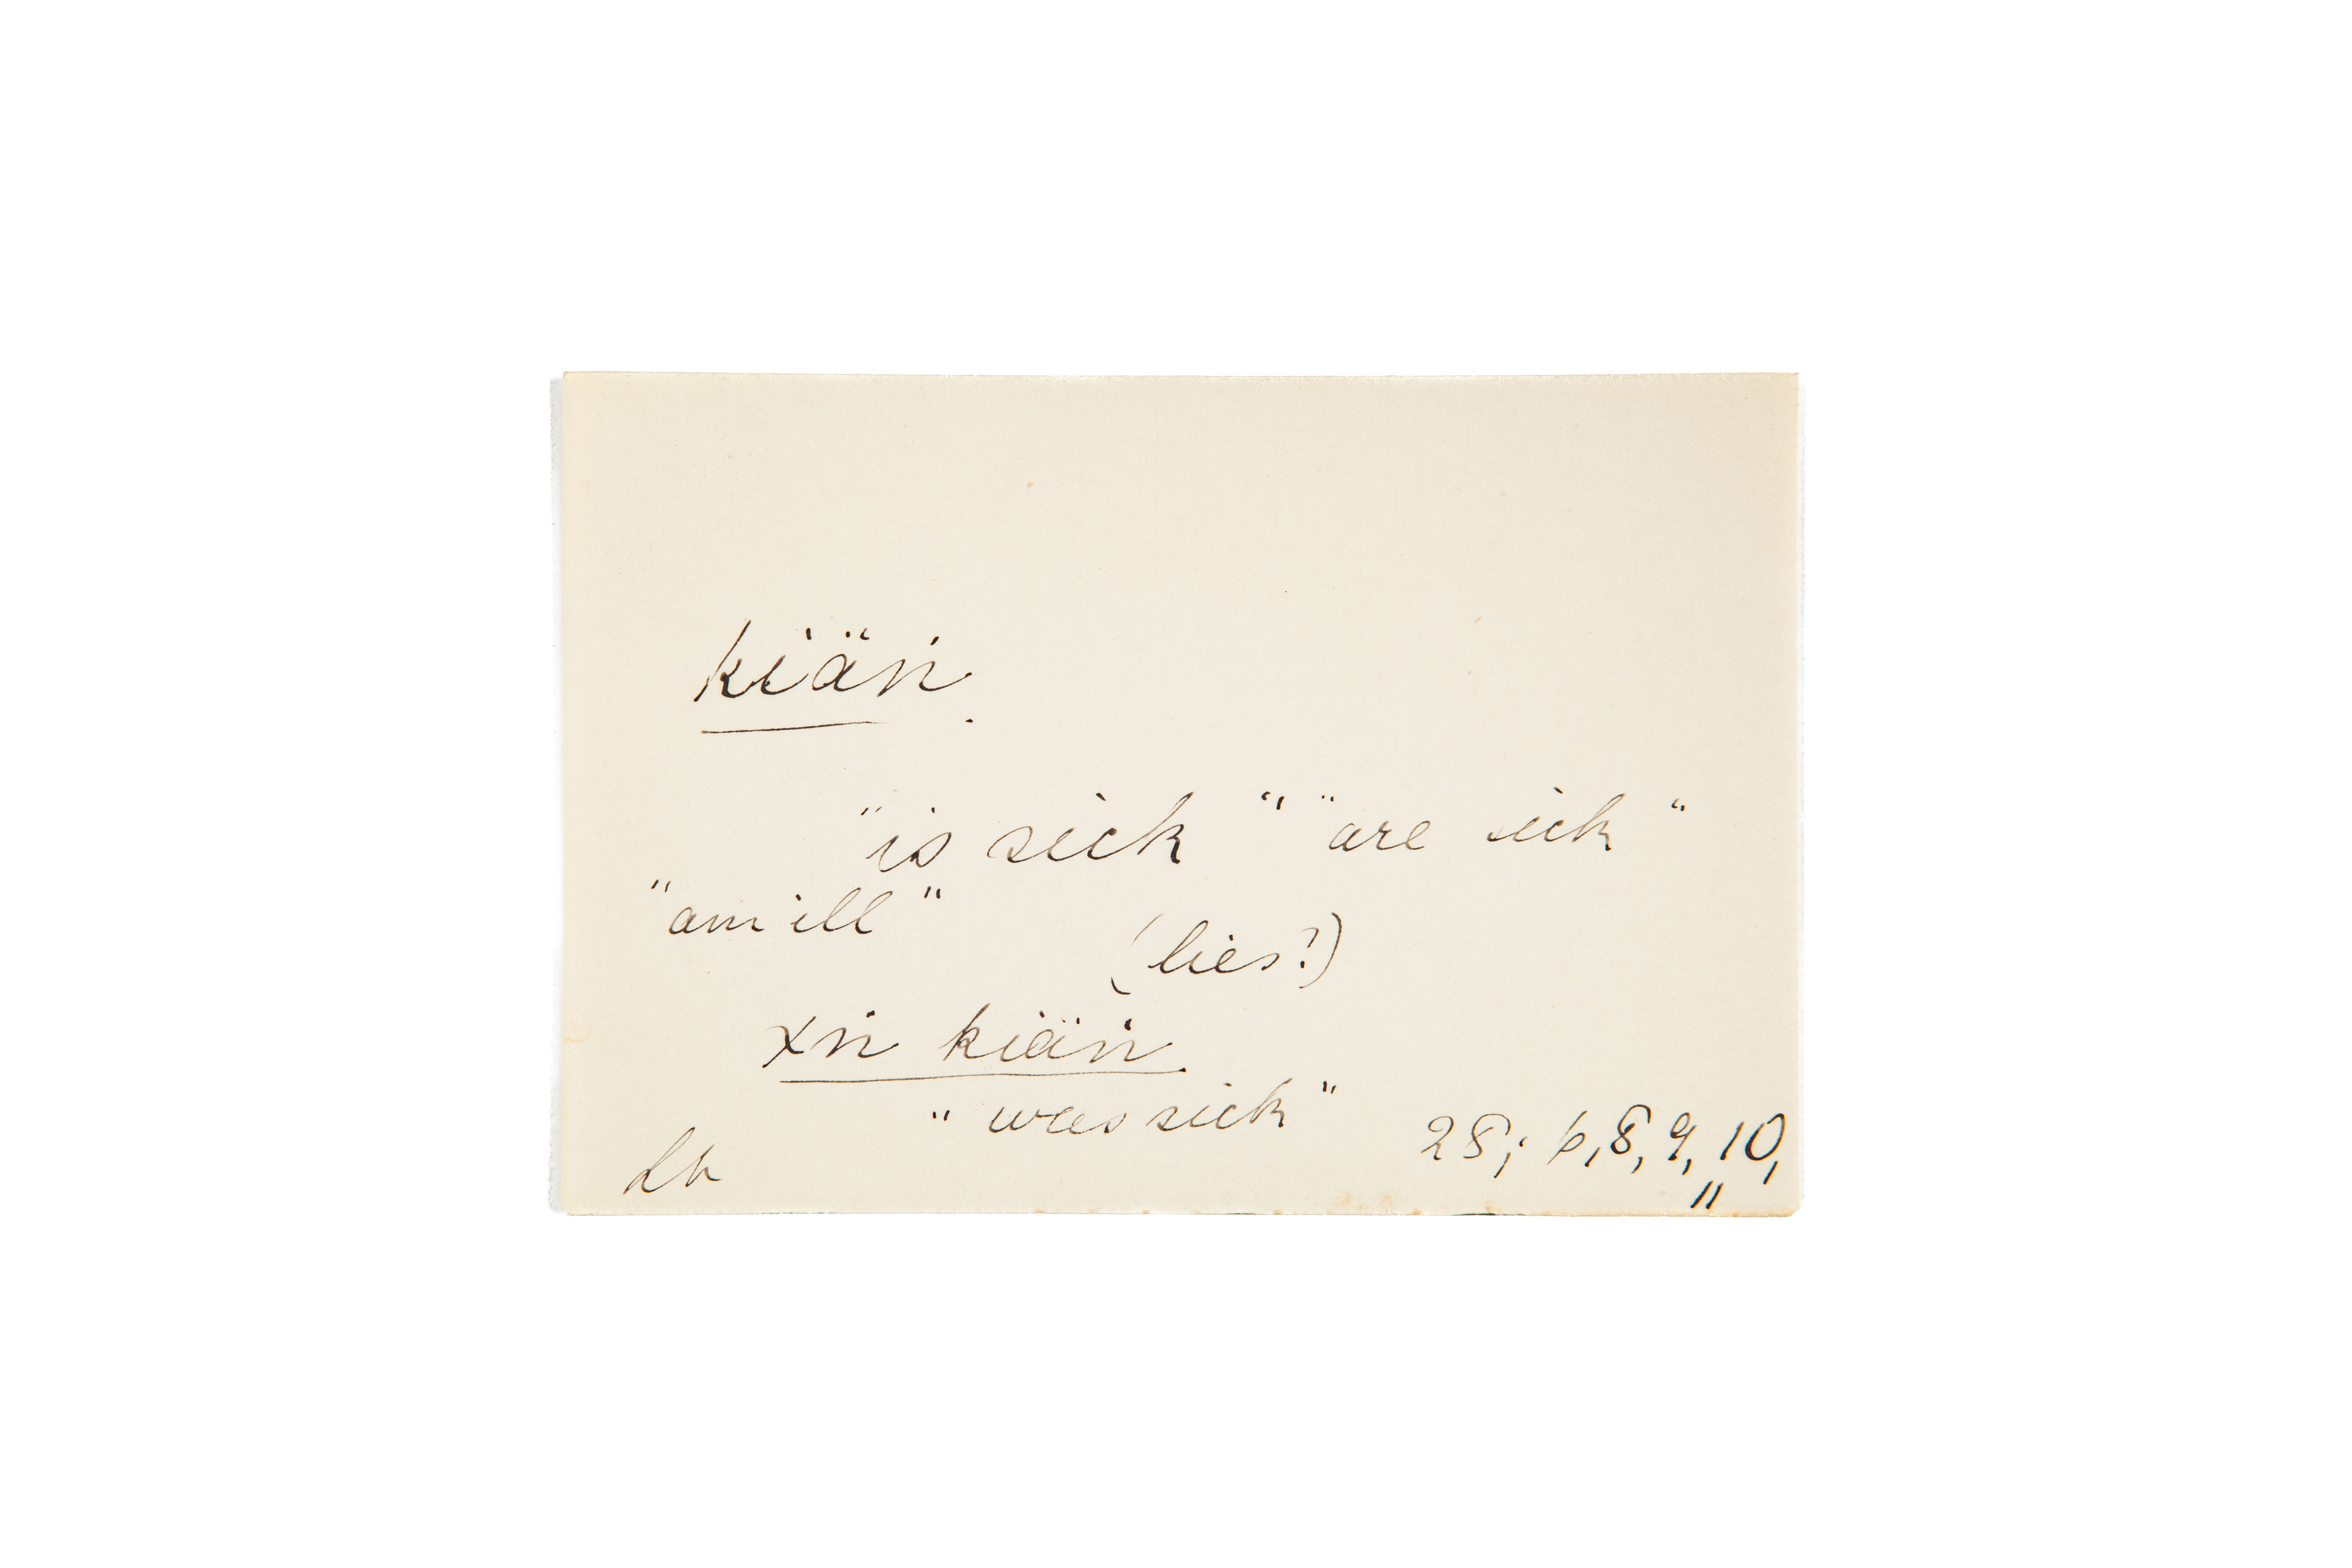 kiäṅ.
"is sick" "are sick"
"am ill"
(lies?)
xṅ kiäṅ.
"was sick"
28; 6,8,9,10,
11